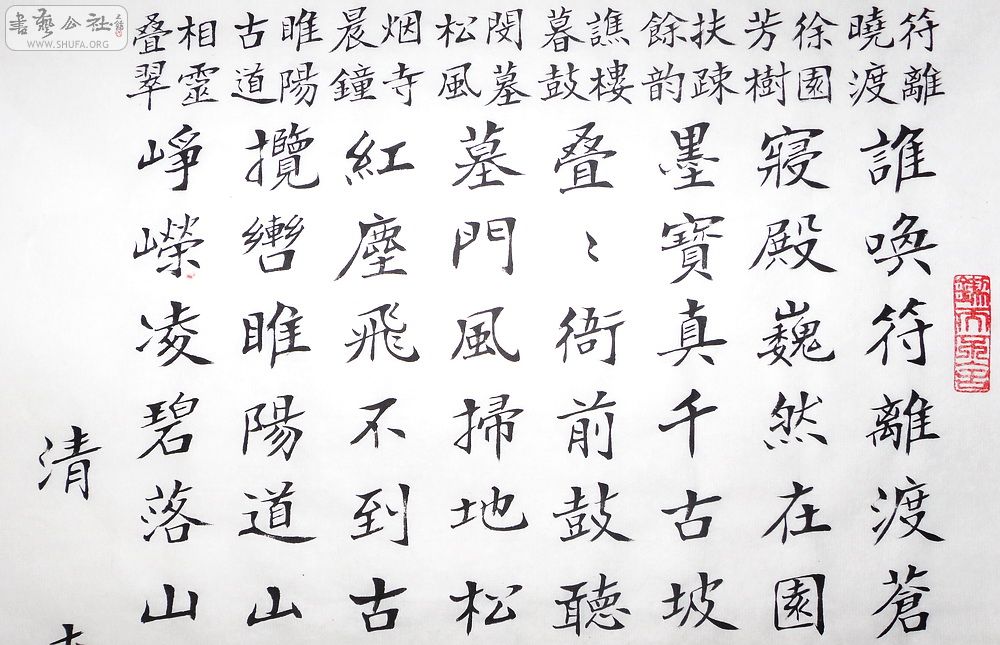 書藝公社
WWW.SHUFA.ORG
符離
曉渡
誰喚符離渡蒼
徐園
芳樹
寢殿巍然在園
扶疎
餘韵
墨寶真千古坡
譙樓
暮鼓
叠〻衙前鼓聽
閔墓
松風
墓門風掃地松
烟寺
晨鐘
紅塵飛不到古
睢陽
古道
攬轡睢陽道山
相靈
叠翠
崢嶸凌碧落山
清